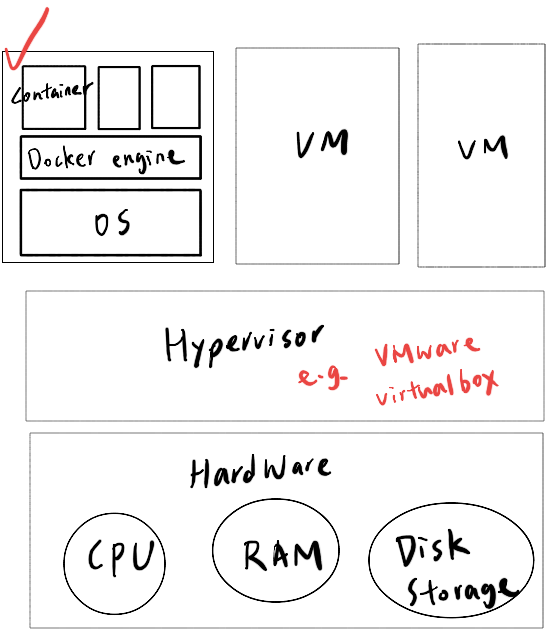 Container
Docker engine
OS
VM
VM
Hypervisor
e.g. VMware
virtualbox
Hardware
CPU
RAM
Disk
Storage